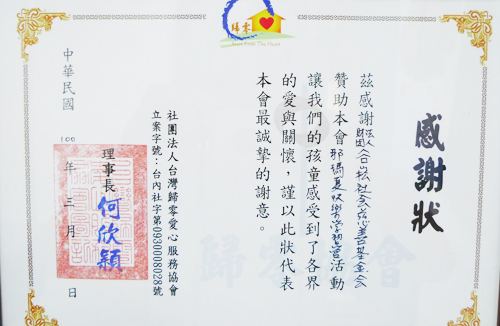 歸零
感謝狀
茲感謝財團法人合松社会慈善基金会
贊助本會那瑪夏學習營活動
讓我們的孩童感受到了各界
的愛與關懷，謹以此狀代表
本會最誠摯的謝意。
社團法人台灣歸零愛心服務協會
立案字號：台內社字第0930008028號
理事長 何欣穎
中華民國 100 年 三 月 日